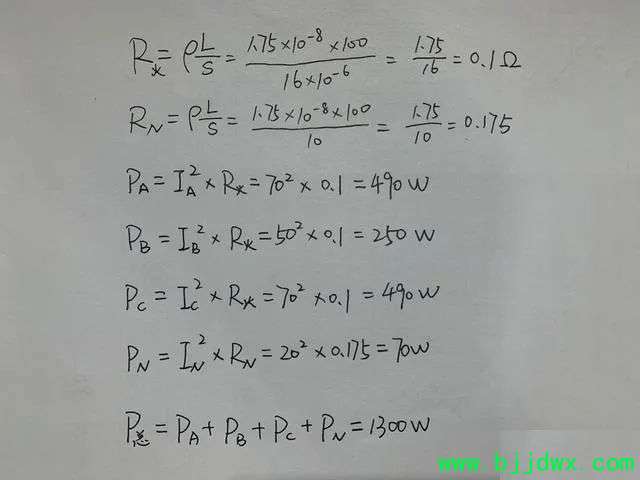 R火 = ρ L/S = 1.75×10⁻⁸×100 / 16×10⁻⁶ = 1.75/16 = 0.1Ω
R_N = ρ L/S = 1.75×10⁻⁸×100 / 10 = 1.75/10 = 0.175
P_A = I_A² × R火 = 70² × 0.1 = 490W
P_B = I_B² × R火 = 50² × 0.1 = 250W
P_C = I_C² × R火 = 70² × 0.1 = 490W
P_N = I_N² × R_N = 20² × 0.175 = 70W
P总 = P_A + P_B + P_C + P_N = 1300W
www.bjjdwx.com